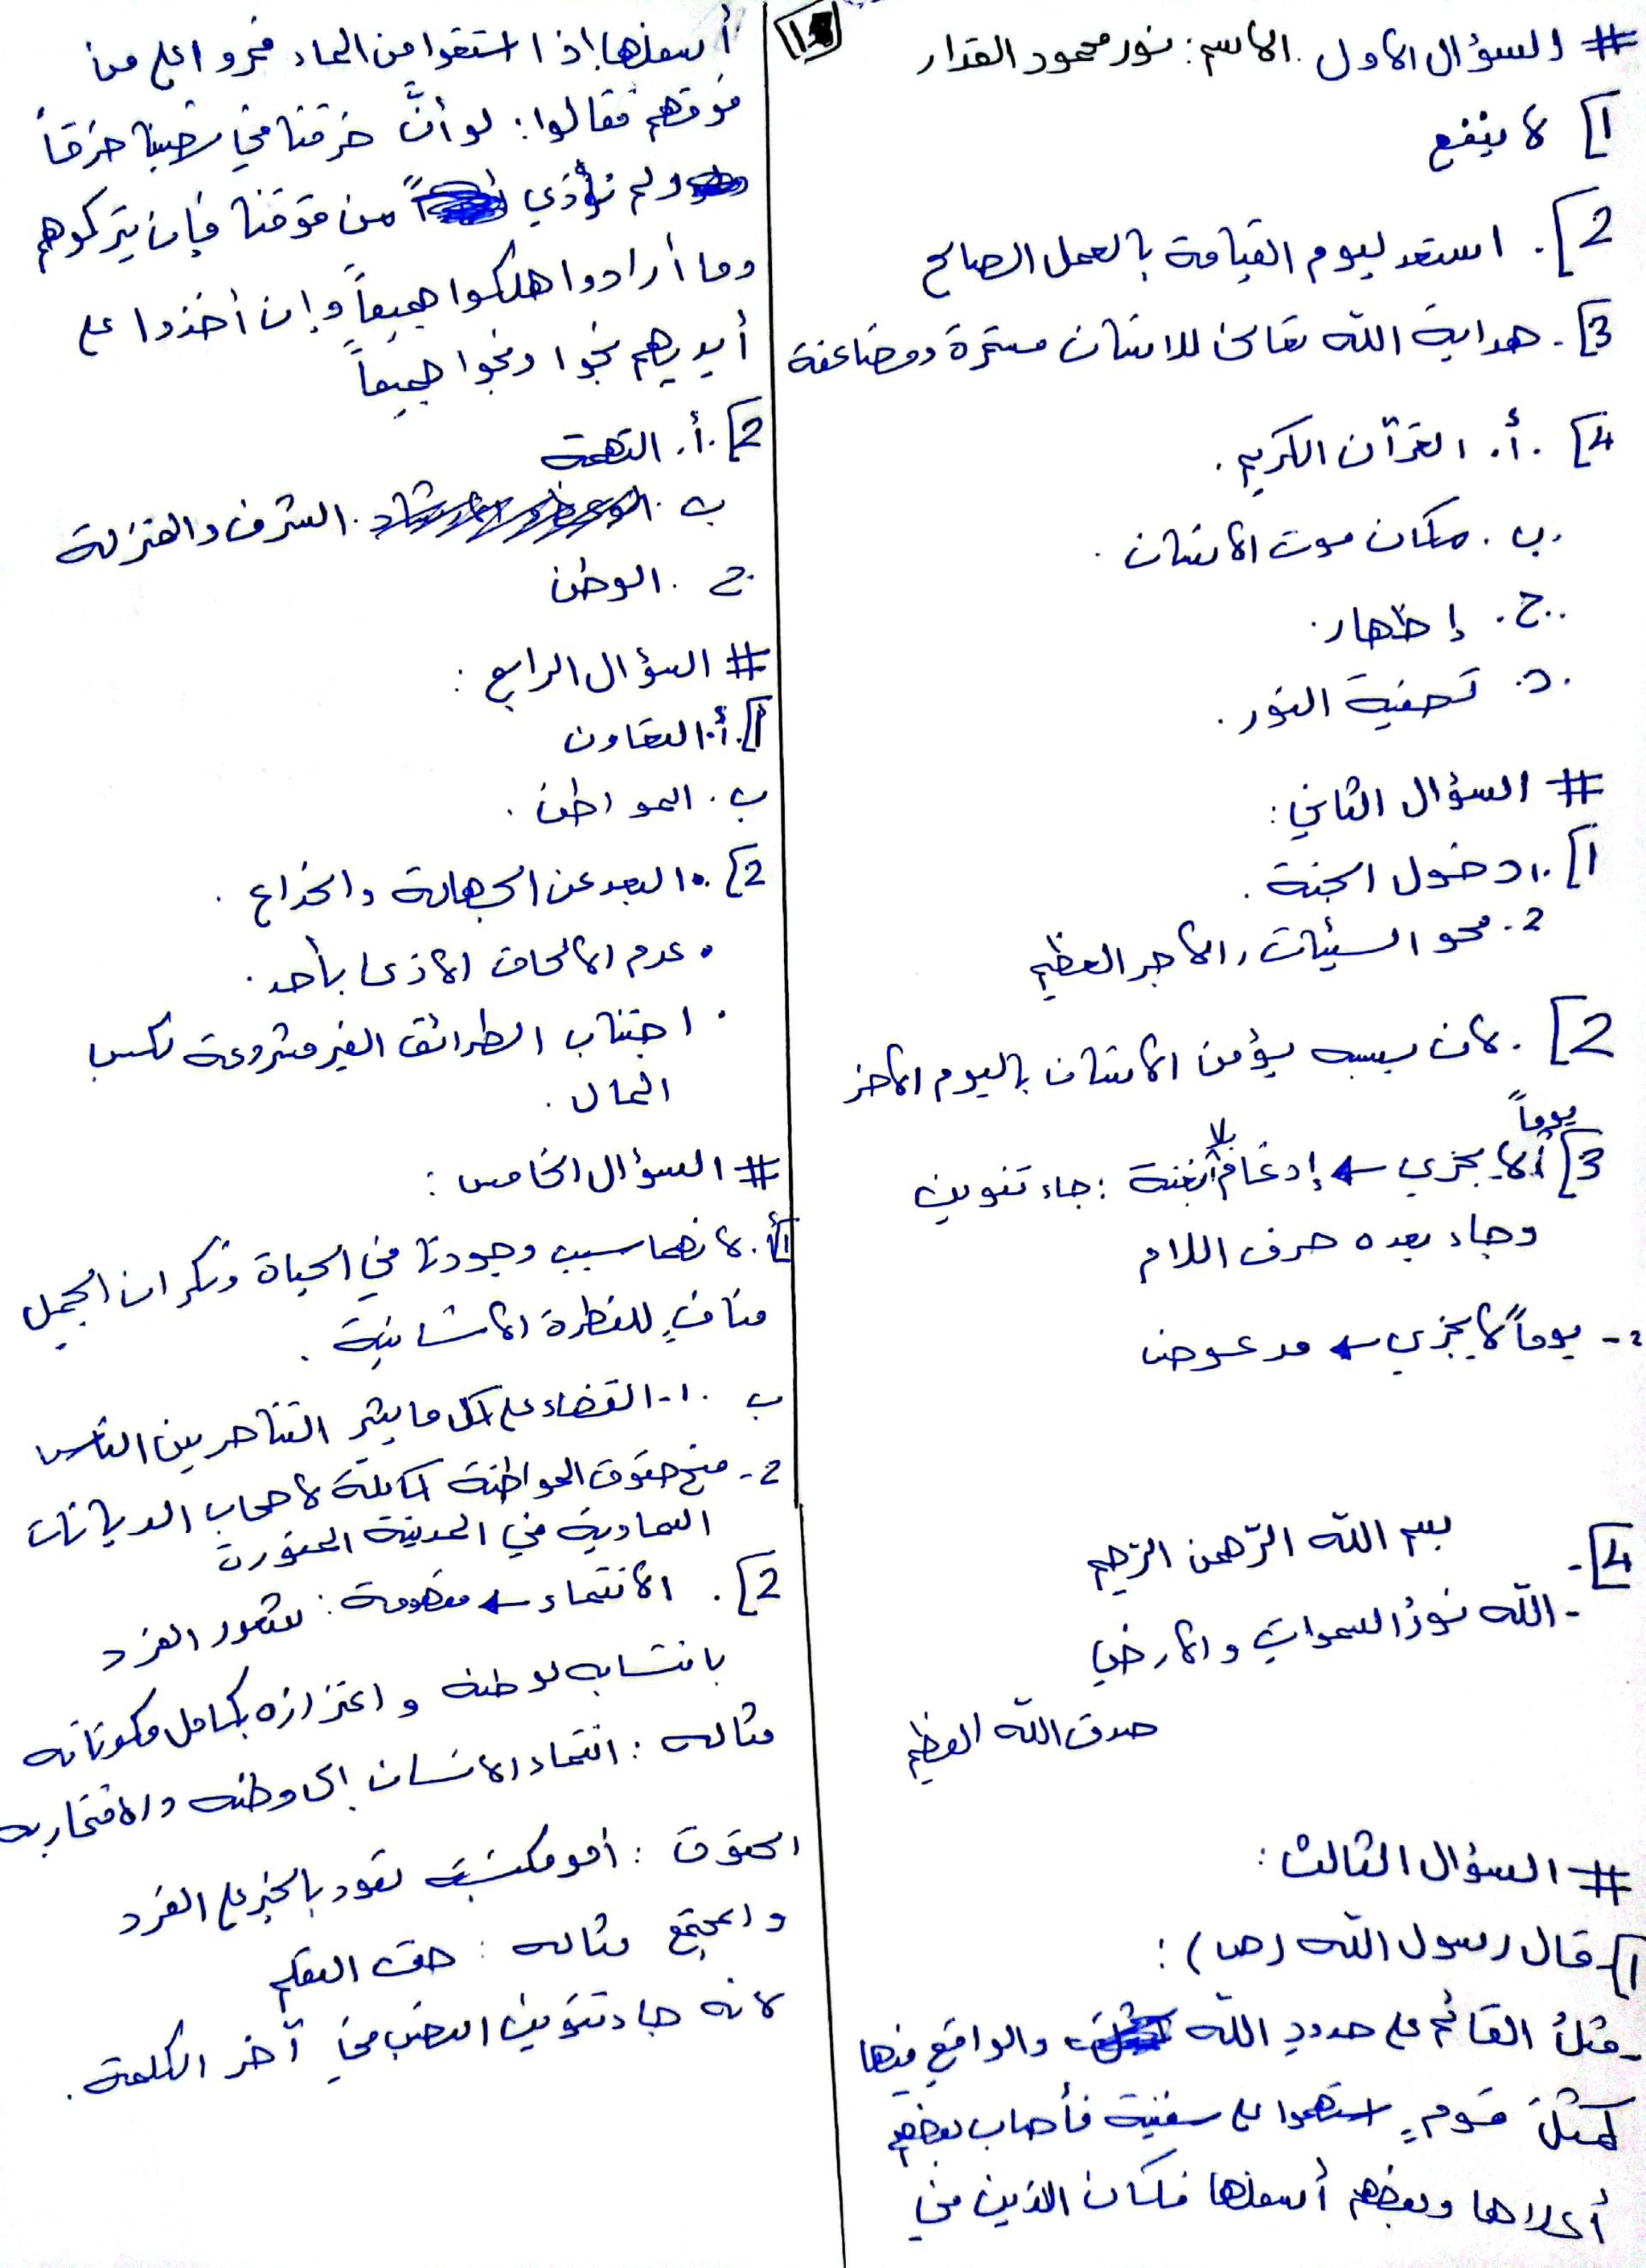 # السؤال الاول . الاسم : نور محمود القدار
1] لا ينفع
2]. استعد ليوم القيامة بالعمل الصالح
3]. هداية الله تعالى للانسان مستمرة ومضاعفة
4] . أ. القرآن الكريم .
ب . مكان موت الانسان .
ج . إظهار .
د . تصفية النور .
# السؤال الثاني :
1] 1. دخول الجنة .
2. محو السيئات , الاجر العظيم
2] . لان بسببه يؤمن الانسان باليوم الآخر
يوماً
لا
3] لا يجزي ← إدغام بغنة : جاء تنوين
وجاء بعده حرف اللام
- يوماً لا يجزي ← مد عوض
4] - بسم الله الرّحمن الرّحيم
- الله نورُ السموات والارضِ
صدق الله العظيم
# السؤال الثالث :
1] قال رسول الله (ص) :
- مثلُ القائم على حدودِ الله والواقع فيها
كمثلَ قومٍ استهموا على سفينة فأصاب بعضهم
أعلاها وبعضهم أسفلها فكان الذين في
15
أسفلها إذا استقوا من الماء فمروا على من
فوقهم فقالوا : لو أنَّ خرقنا في نصيبنا خرقاً
ولم نؤذي من فوقنا فإن يتركوهم
وما أرادوا هلكوا جميعاً وإن أخذوا على
أيديهم نجوا ونجوا جميعاً
2] . أ. التهمة
ب . الشرف والمنزلة
ج . الوطن
# السؤال الرابع :
1] . أ. التعاون
ب . المواطن .
2] . • البعد عن الجهالة والخداع .
• عدم الالحاق الاذى بأحد .
• اجتناب الطرائق الغير مشروعة لكسب
المال .
# السؤال الخامس :
1] أ. لانهما سبب وجودنا في الحياة ونكران الجميل
منافٍ للفطرة الانسانية .
ب . 1- القضاء على كل ما يثير التناحر بين الناس
2- منح حقوق المواطنة كاملة لاصحاب الديانات
السماوية في المدينة المنورة
2] . الانتماء ← مفهومه : شعور الفرد
بانتسابه لوطنه واعتزازه بكامل مكوناته
مثاله : انتماء الانسان الى وطنه والافتخار به
الحقوق : أمور مكتسبة تعود بالخير على الفرد
والمجتمع مثاله : حق التعلم
لانه جاء تنوين النصب في آخر الكلمة .